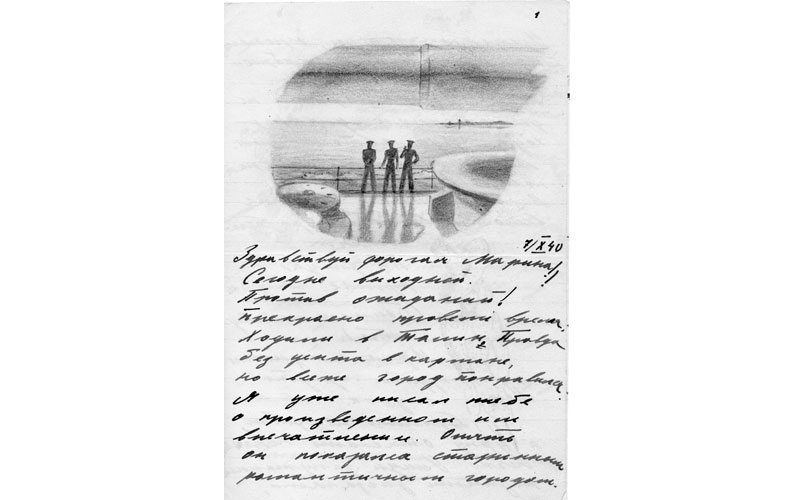 1
7/X 40
Здравствуй дорогая Марина!!
Сегодня выходной.
Против ожиданий!
прекрасно провели время.
Ходили в Талин, Правда
без цента в кармане,
но всеже город понравился.
Я уже писал тебе
о произведенном им
впечатлении. Опять
он показался старинным
романтичным городом.